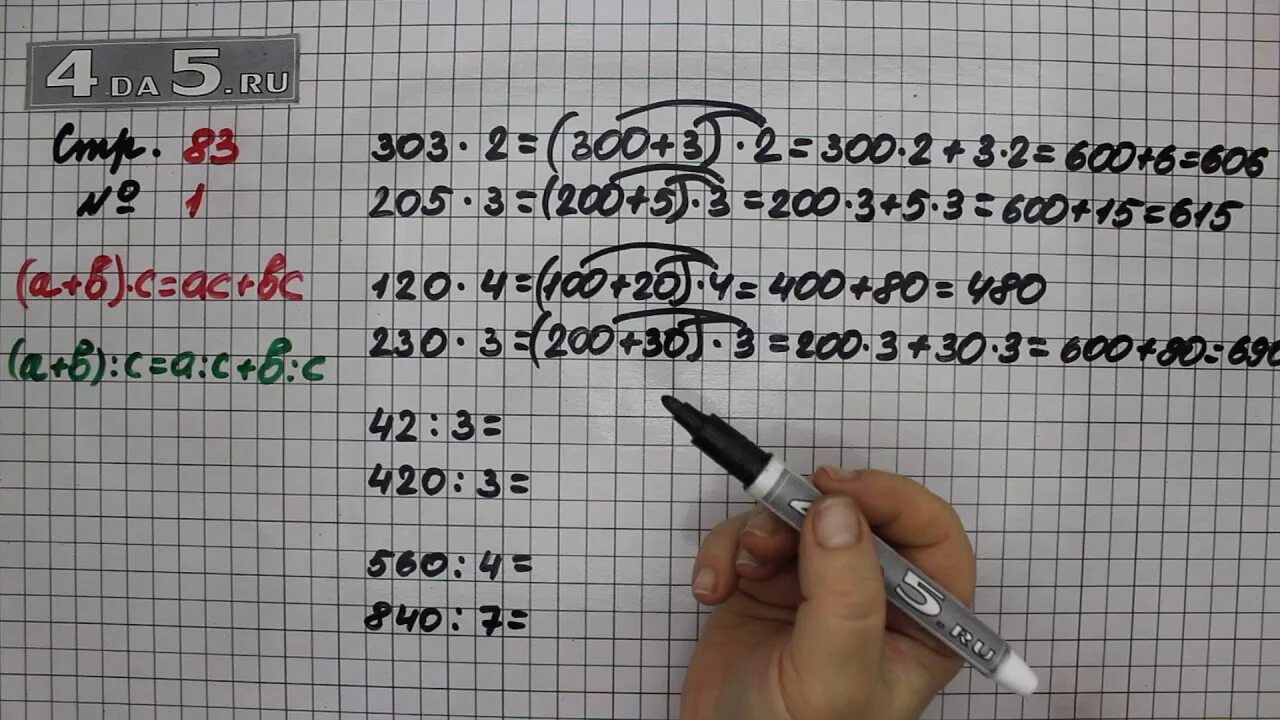 4 DA 5 .RU
Стр. 83
№ 1
(а+в)·с=ас+вс
(а+в):с=а:с+в:с
303 · 2 = (300+3) · 2 = 300·2 + 3·2 = 600+6=606
205 · 3 = (200+5) · 3 = 200·3+5·3 = 600+15=615
120 · 4 = (100+20) · 4 = 400+80 = 480
230 · 3 = (200+30) · 3 = 200·3 + 30·3 = 600+90=690
42 : 3 =
420 : 3 =
560 : 4 =
840 : 7 =
5 .RU